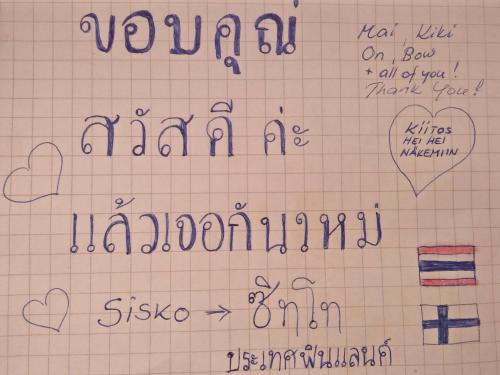 ขอบคุณ
Mai, Kiki
On, Bow
+ all of you!
Thank You!
สวัสดี ค่ะ
Kiitos
HEI HEI
NÄKEMIIN
แล้วเจอกันใหม่
Sisko → ซีทโท
ประเทศฟินแลนด์